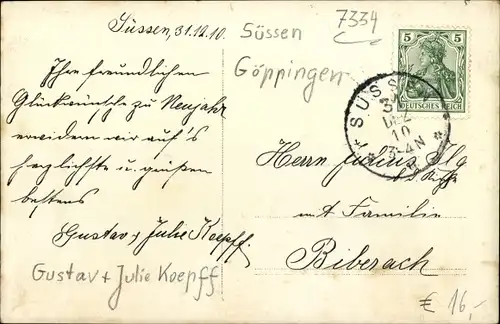 Süssen, 31.12.10.
Ihre freundlichen
Glückwünsche zu Neujahr
erwidern wir auf's
herzlichste u. grüßen
bestens
Gustav + Julie Koepff.
Gustav + Julie Koepff
Süssen
Göppingen
7334
5 5
DEUTSCHES REICH
SÜSSEN
31
DEZ
10
3-4N
Herrn Julius Ilg
mit Familie
Biberach
€ 16,-